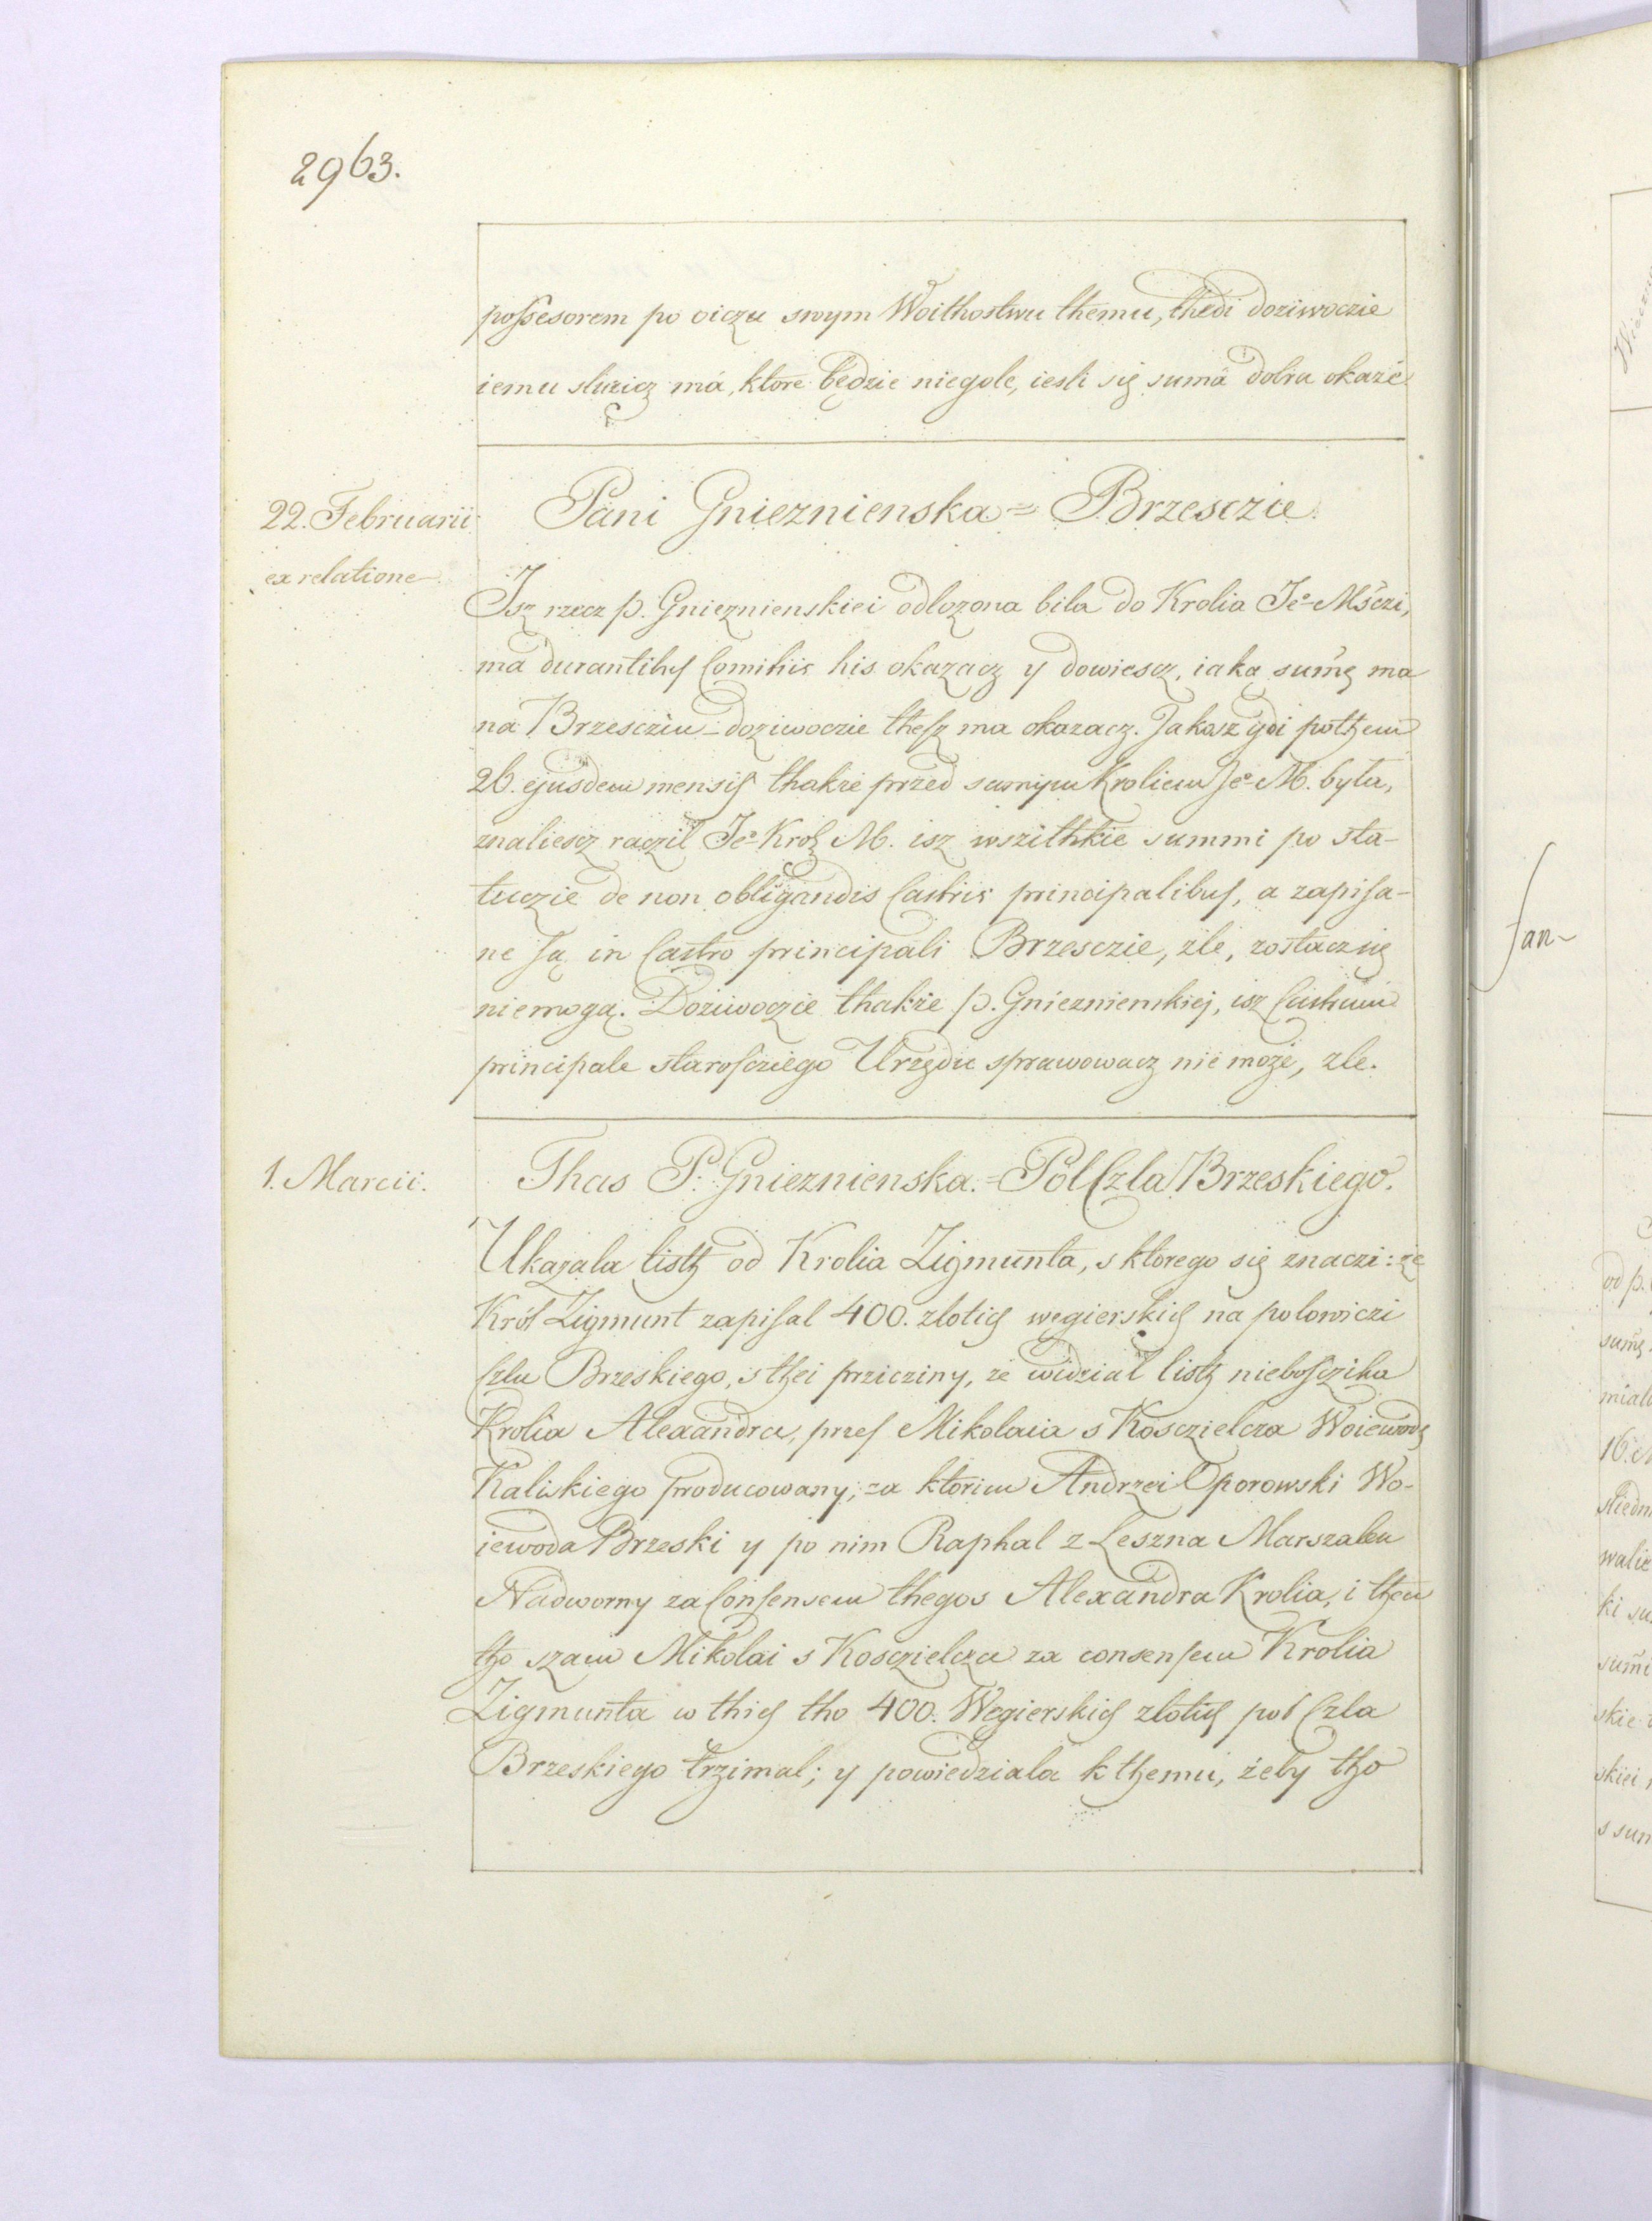 2963.
possesorem po oiczu swym Woithostwu themu, thedi doziwoczie
iemu sluzicz má, ktore będzie niegole, iesli się sumá dobra okaże
22. Februarii
ex relatione
Pani Gnieznienska = Brzesczie.
Isz rzecz p. Gnieznienskiei odlozona bila do Krolia Je° Mśczi,
má durantibus Comitiis his okazacz y dowiescz, iaką sumę ma
ná Brzescziu – doziwoczie thesz ma okazacz. Jakosz gdi pothem
26. ejusdem mensis thakże przed samym Kroliem Je° M. była,
znaliescz raczil Je° Krol M. isz wszithkie summi po sta-
tuczie de non obligandis Castris principalibus, a zapisa-
ne są in Castro principali Brzesczie, zle, zostacz się
niemogą. Doziwoczie thakże p. Gnieznienskiej, isz Castrum
principale starosciego Urzędu sprawowacz nie może, zle.
1. Marcii.
Thas P. Gnieznienska. = Pol Czla Brzeskiego.
Ukazala listh od Krolia Zigmunta, s ktorego się znaczi: że
Król Zigmunt zapisal 400. zlotich węgierskich na polowiczi
Czla Brzeskiego, s thei prziczini, że widzial listh nieboszczika
Krolia Alexandra, przes Mikolaia s Kosczielcza Woiewodę
Kaliskiego producowany; za ktorim Andrzei Oporowski Wo-
iewoda Brzeski y po nim Raphal z Leszna Marszalek
Nadworny za Consensem thegos Alexandra Krolia, i then
tho szam Mikolai s Kosczielcza za consensem Krolia
Zigmunta w thich tho 400. Wegierskich zlotich pol Czla
Brzeskiego trzimal; y powiedziala k themu, żeby tho